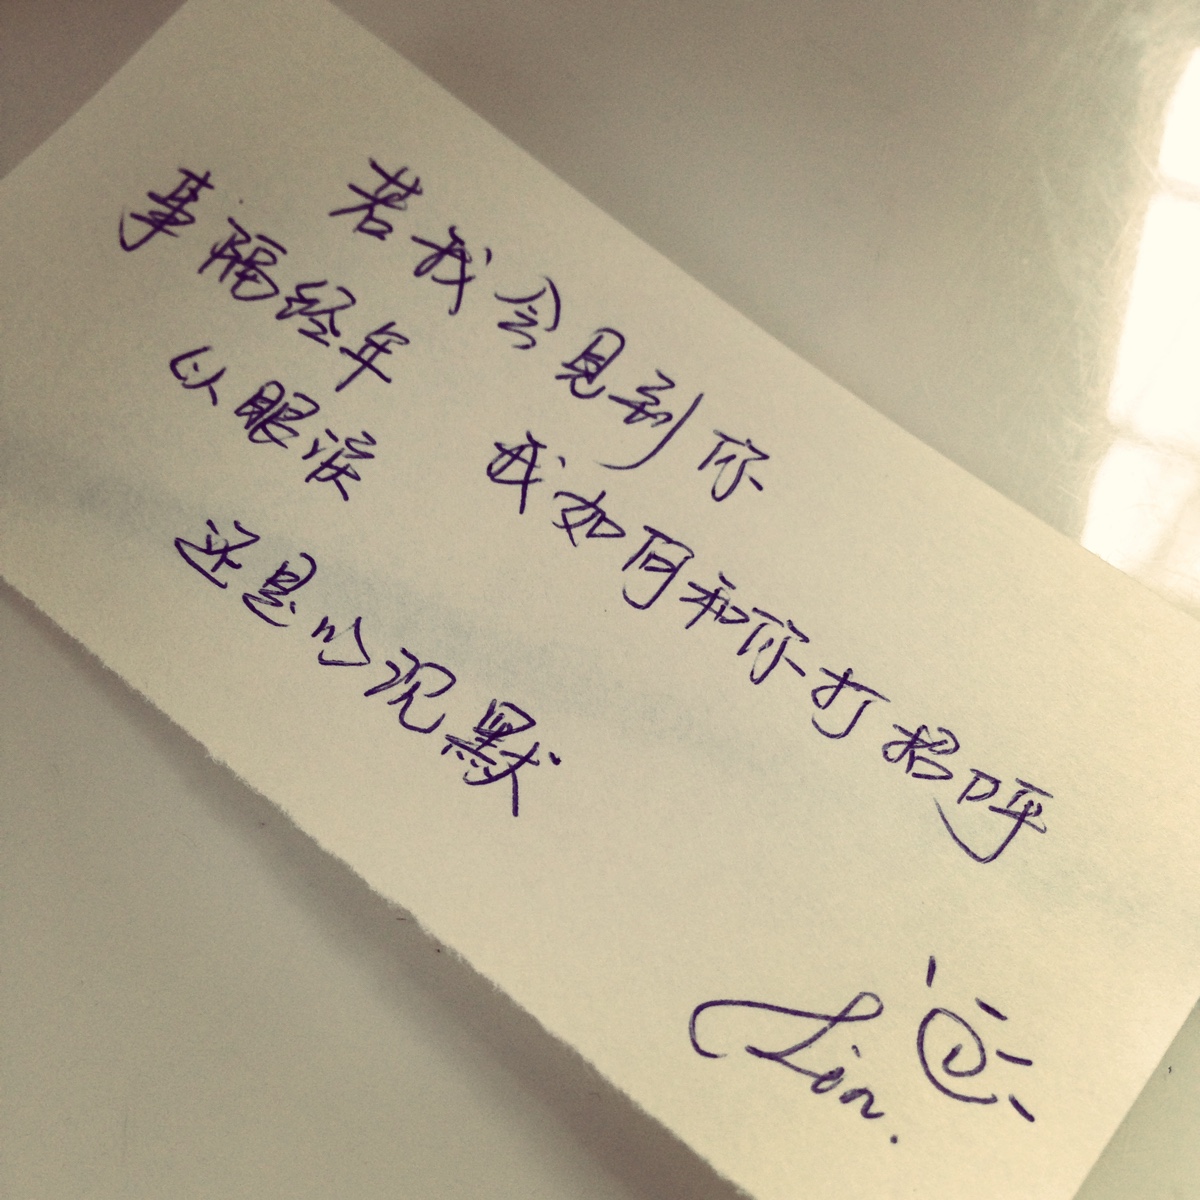 若我会见到你
事隔经年
我如何和你打招呼
以眼泪
还是以沉默
Lin.